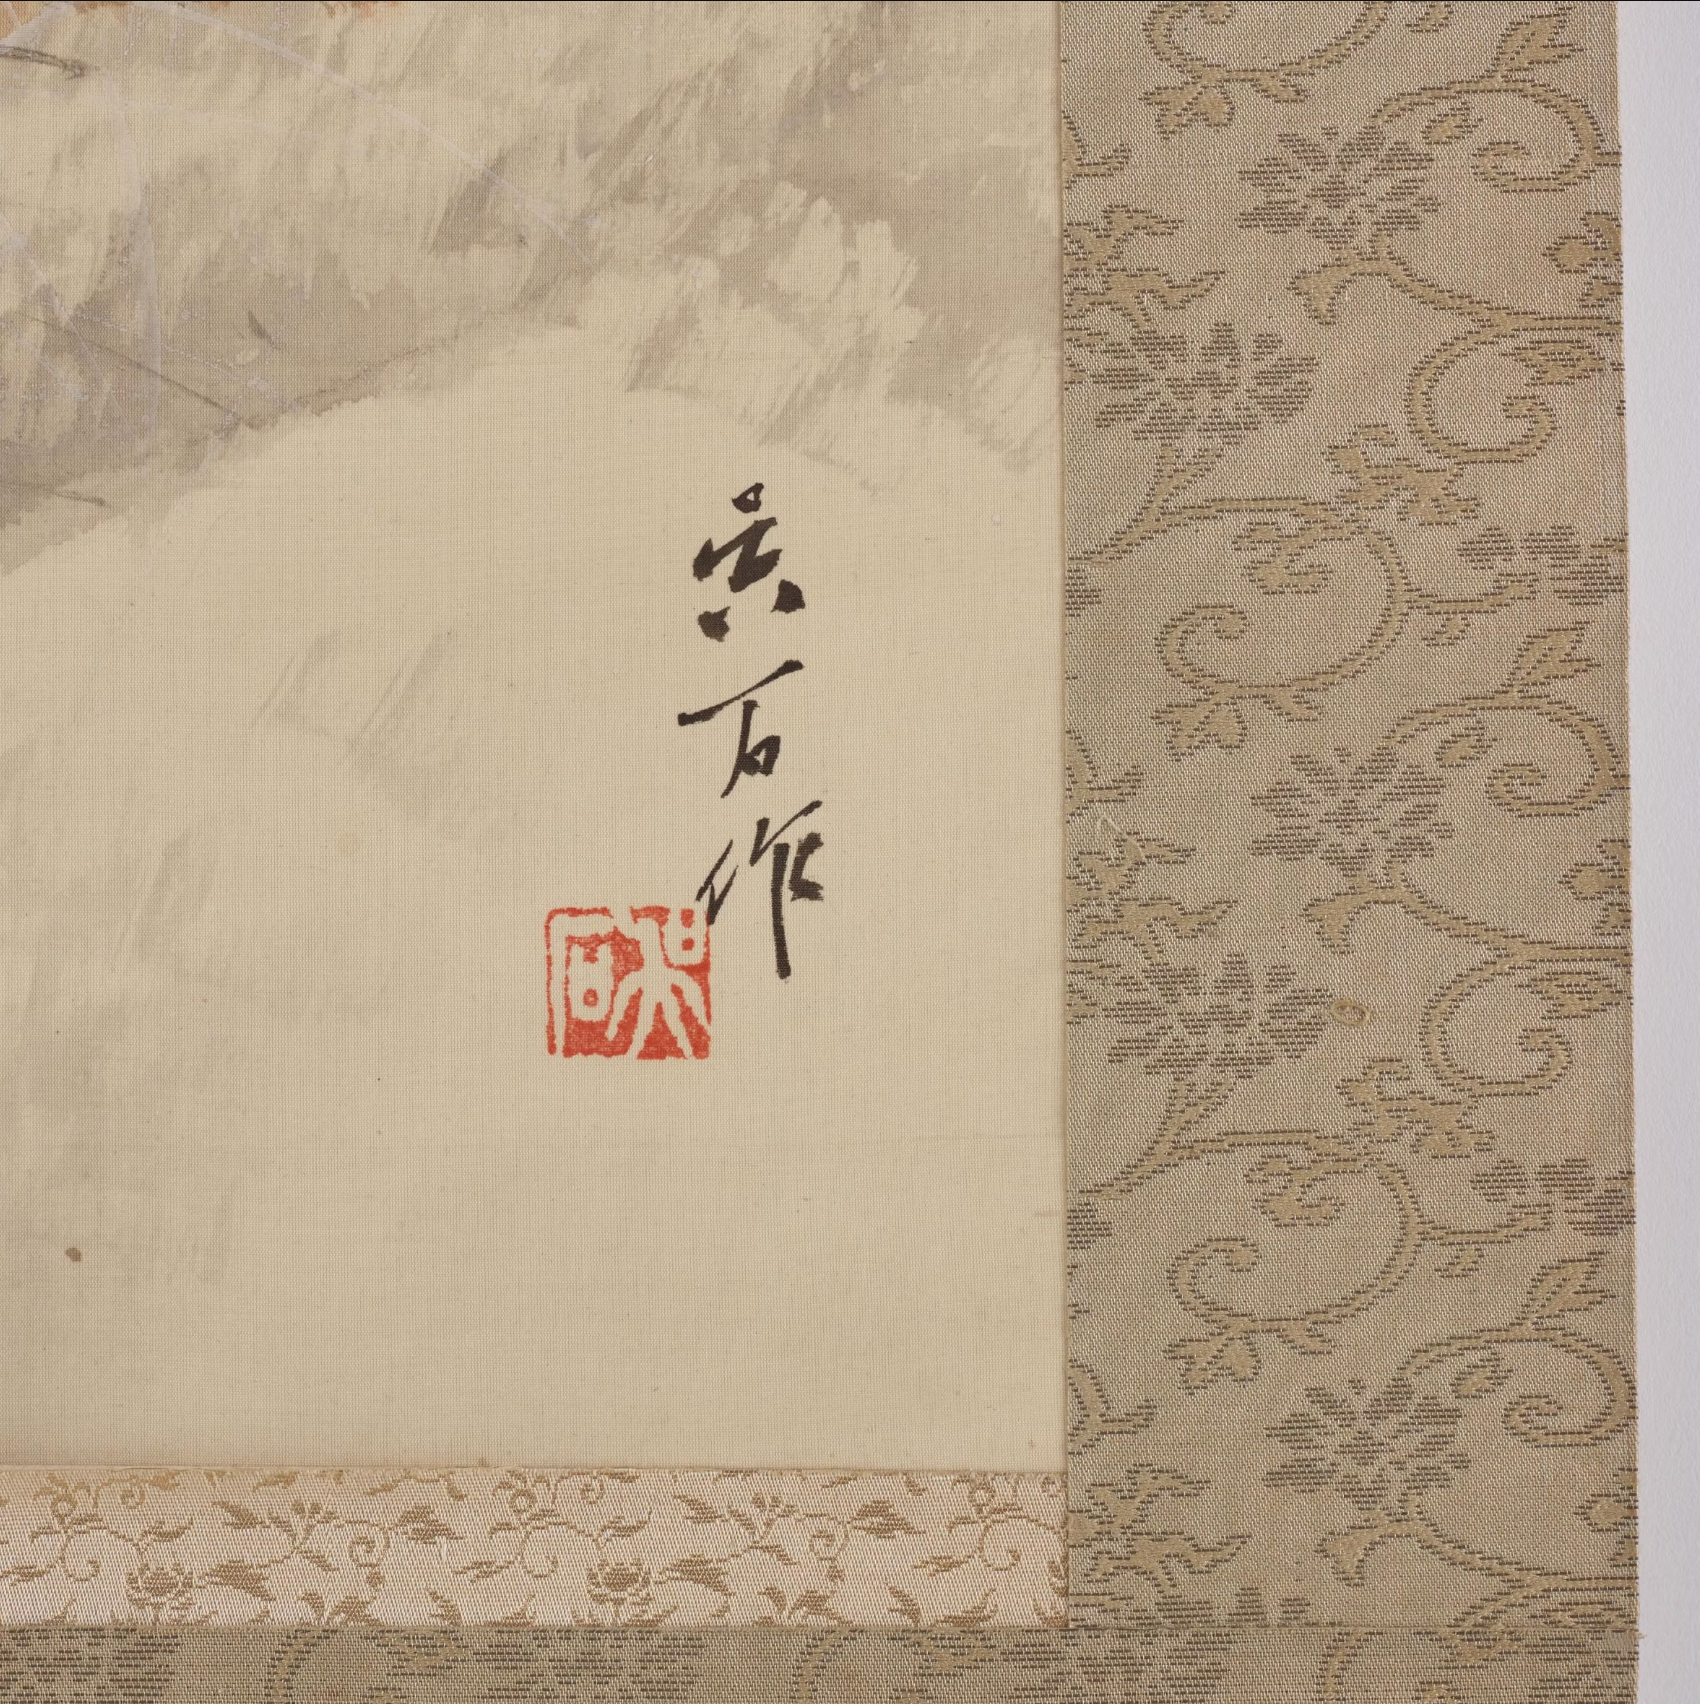 呉石作